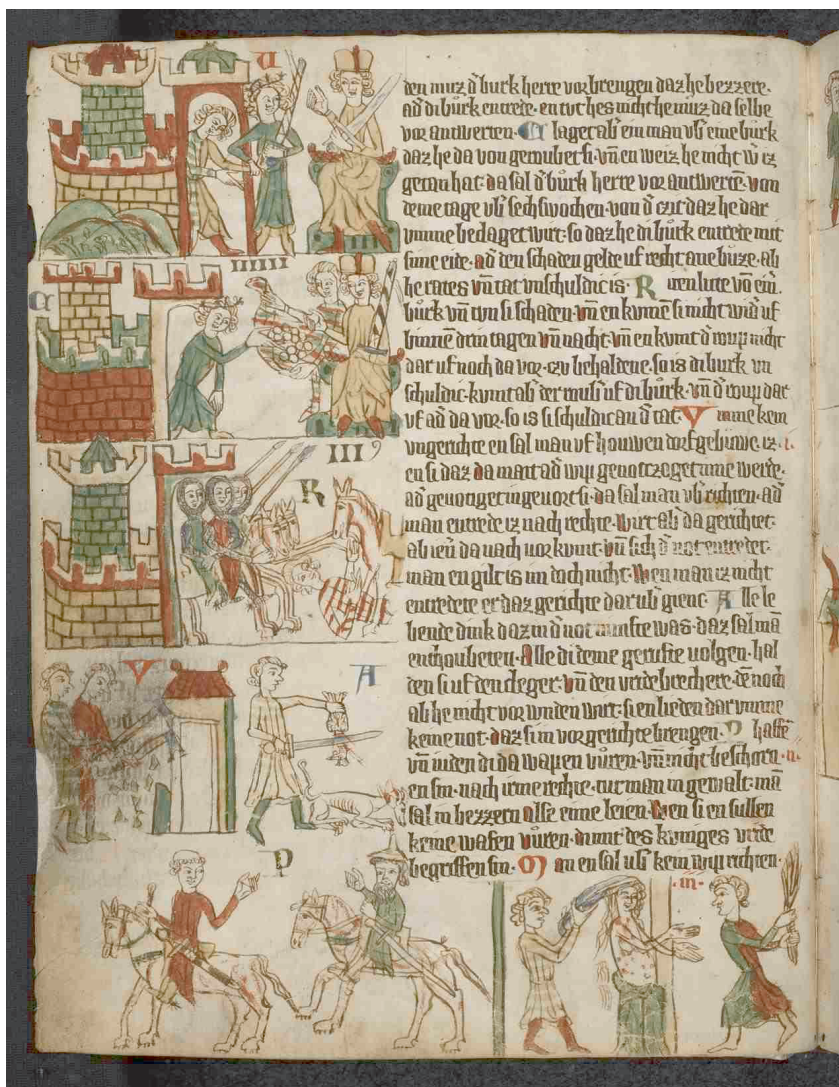 den muz d' burk herre vorbrengen daz he bezzere.
ad' di burk entrede. en tut hes nicht he muz da selbe
vor antwerten. C laget ab' ein man vb' eine burk
daz he da von geroubet si. vn̄ en weiz he nicht w' iz
getan hat. da sal d' burk herre vor antwertē. von
deme tage vb' sechs wochen. von d' czit daz he dar
vmme bedaget wirt. so daz he di burk entrede mit
sime eide. ad' den schaden gelde uf recht ane buze. ab
he rates vn̄ tat vnschuldic is. R iten lute vō eiņ
burk vn̄ tun si schaden. vn̄ en kumē si nicht wid' uf
binnē drin tagen vn̄ nacht. vn̄ en kvmt d' roup nicht
dar uf noch da vor. czu behaldene. so is di burk vn
schuldic. kvmt ab' der roub uf di burk. vn̄ d' roup dar
vf ad' da vor. so is si schuldic an d' tat. V mme kein
vngerichte en sal man vf houwen dorfgebuwe. iz
en si daz da mait ad' wip genotczoget inne werde.
ad' genotzoget in gevort si. da sal man vb' richten. ad'
man entrede iz nach rechte. wirt ab' da gerichtet.
ab ien' da nach vor kvmt. vn̄ sich d' not entredet.
man en gilt is im doch nicht. Wen man iz nicht
entredete er daz gerichte dar ub' gienc. A lle le
bende dink daz in d' not nunfte was. daz sal mā
enthoubeten. Alle di deme gerufte volgen. hal
den si uf den cleger. vn̄ den vridebrechere. dēnoch
ab he nicht vor wnden wirt. si en liden dar vmme
keine not. daz si in vor gerichte brengen. P haffē
vn̄ iuden di da wapen vuren. vn̄ nicht beschorn
en sin. nach irme rechte. tut man in gewalt. mā
sal in bezzern alse eime leien. Wen si en sullen
keine wafen vuren. di mit des kuniges vride
begriffen sin. M an en sal ub' kein wip richten.